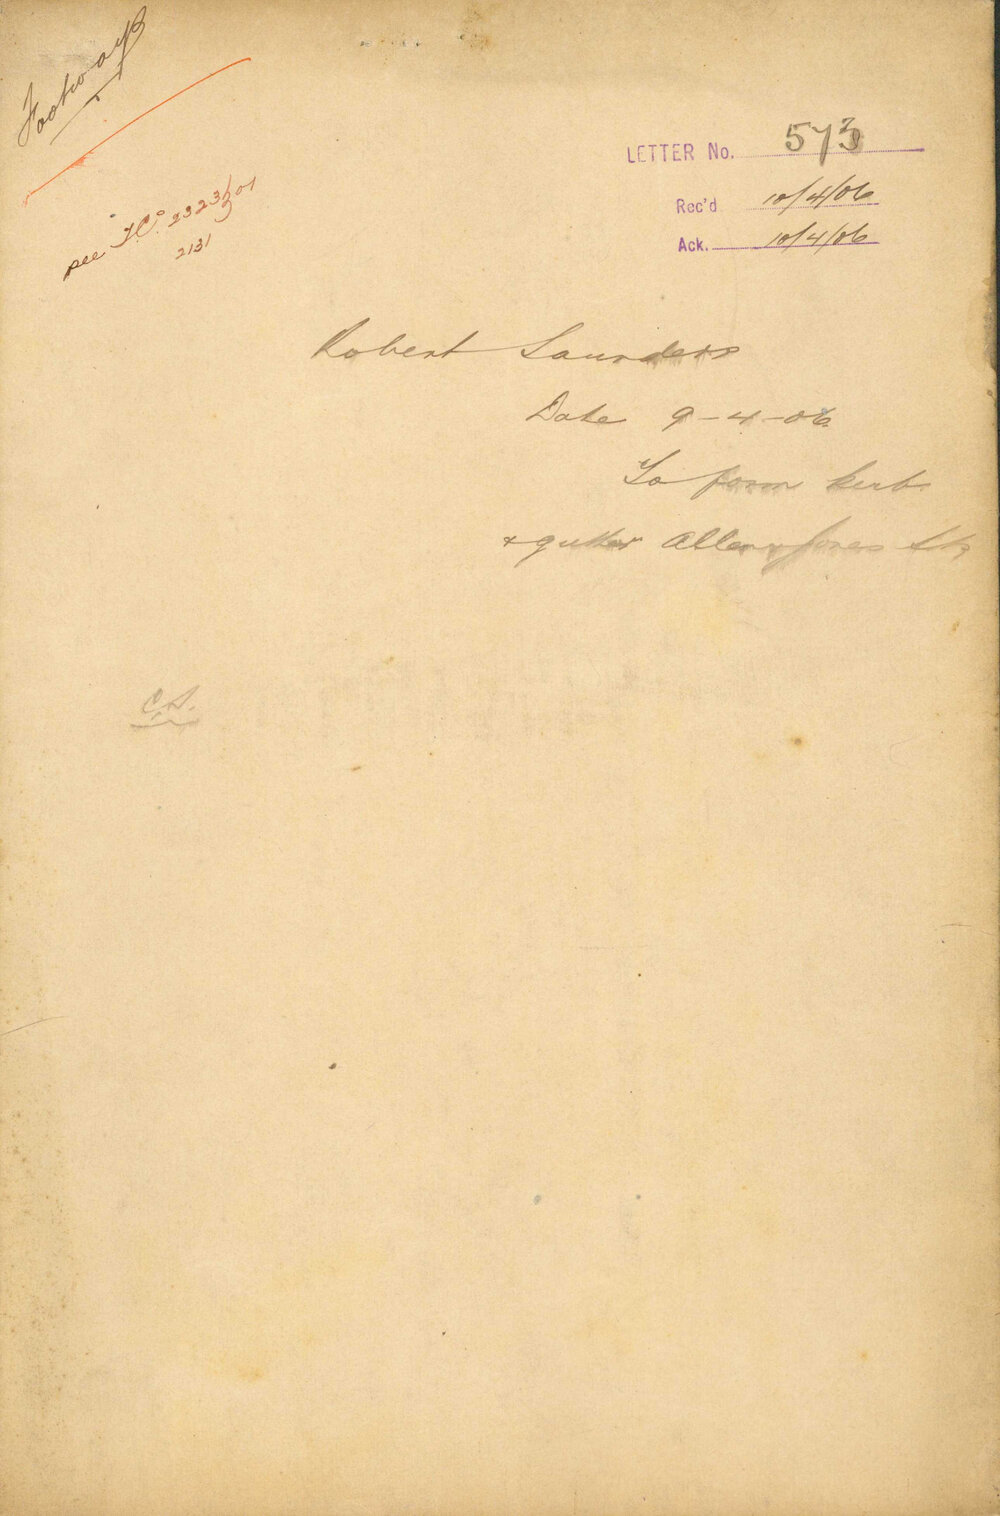 Footways
see T.C. 2323/01
2131
LETTER No. 573
Rec'd 10/4/06
Ack. 10/4/06
Robert Saunders
Date 9-4-06
To form kerb
& gutter Allen & Jones Sts
C.S.